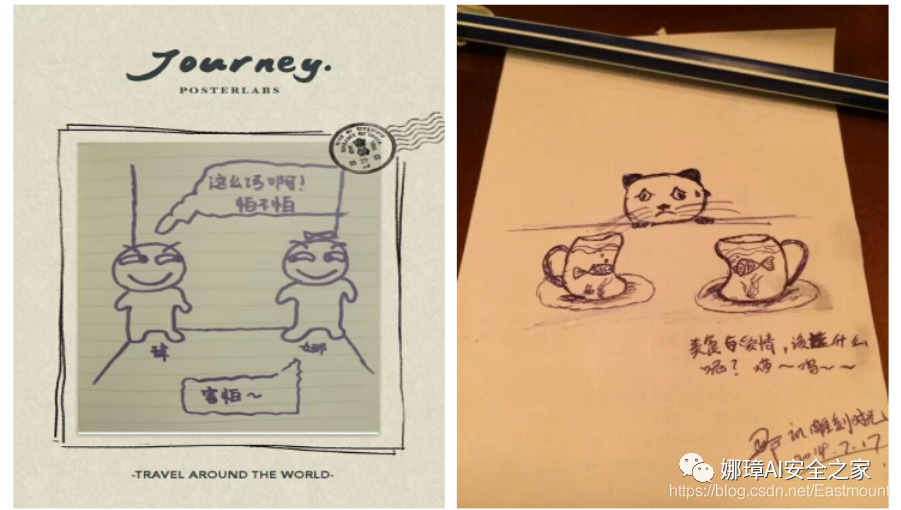 Journey.
POSTERLABS
这么巧啊!
怕不怕
璋
娜
害怕~
-TRAVEL AROUND THE WORLD-
美食与爱情,该选什么
呢? 呜~呜~~
记雕刻时光
2014.7.17
娜璋AI安全之家
https://blog.csdn.net/Eastmount